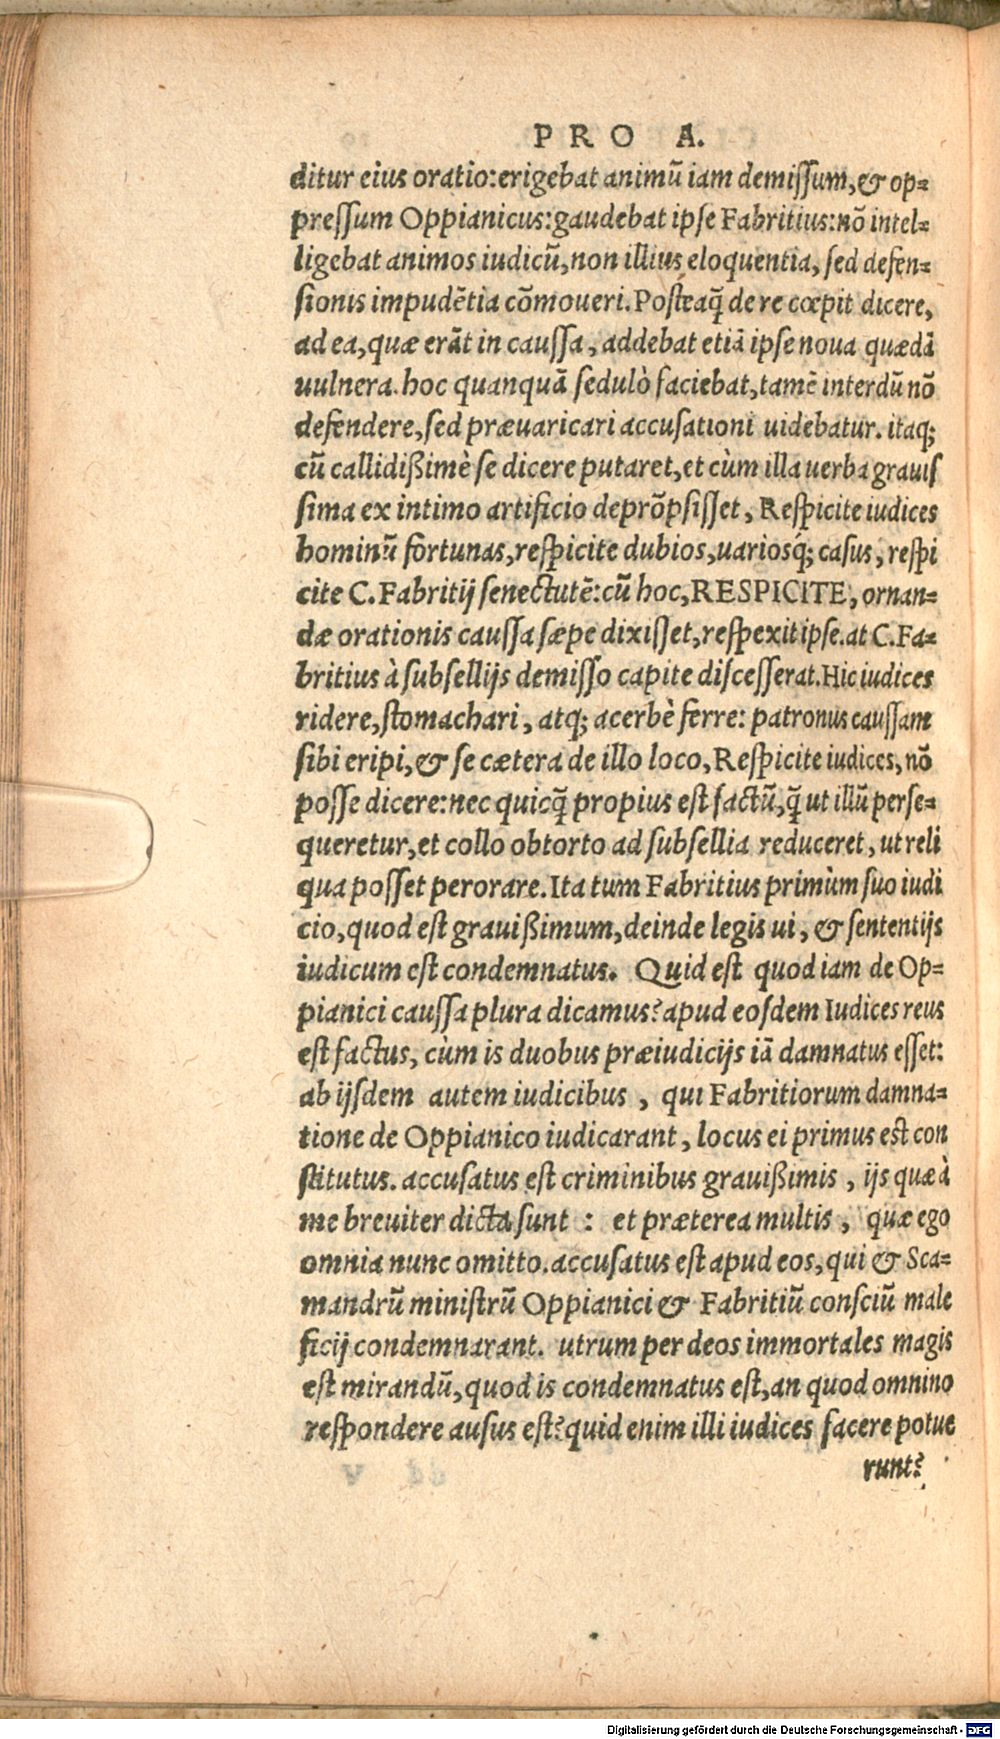 PRO A.
ditur eius oratio:erigebat animũ iam demissum,& op=
pressum Oppianicus:gaudebat ipse Fabritius:nõ intel=
ligebat animos iudicũ,non illius eloquentia, sed defen=
sionis impudẽtia cõmoueri.Posteaq̃ de re cœpit dicere,
ad ea,quæ erãt in caussa, addebat etiã ipse noua quædã
uulnera. hoc quanquã sedulò faciebat,tamẽ interdũ nõ
defendere,sed præuaricari accusationi uidebatur. itaq;
cũ callidißimè se dicere putaret,et cùm illa uerba grauis
sima ex intimo artificio deprõpsisset, Respicite iudices
hominũ fortunas,respicite dubios,uariosq́; casus, respi
cite C.Fabritij senectutẽ:cũ hoc,RESPICITE, ornan=
dæ orationis caussa sæpe dixisset,respexit ipse.at C.Fa=
britius à subsellijs demisso capite discesserat.Hic iudices
ridere,stomachari, atq; acerbè ferre: patronus caussam
sibi eripi,& se cætera de illo loco,Respicite iudices, nõ
posse dicere:nec quicq̃ propius est factũ,q̃ ut illũ perse=
queretur,et collo obtorto ad subsellia reduceret, ut reli
qua posset perorare.Ita tum Fabritius primùm suo iudi
cio,quod est grauißimum,deinde legis ui, & sententijs
iudicum est condemnatus. Quid est quod iam de Op=
pianici caussa plura dicamus?apud eosdem Iudices reus
est factus, cùm is duobus præiudicijs iã damnatus esset:
ab ijsdem autem iudicibus, qui Fabritiorum damna=
tione de Oppianico iudicarant, locus ei primus est con
stitutus. accusatus est criminibus grauißimis, ijs quæ à
me breuiter dicta sunt : et præterea multis, quæ ego
omnia nunc omitto.accusatus est apud eos,qui & Sca=
mandrũ ministrũ Oppianici & Fabritiũ consciũ male
ficij condemnarant. utrum per deos immortales magis
est mirandũ,quod is condemnatus est,an quod omnino
respondere ausus est?quid enim illi iudices facere potue
runt?
Digitalisierung gefördert durch die Deutsche Forschungsgemeinschaft - DFG